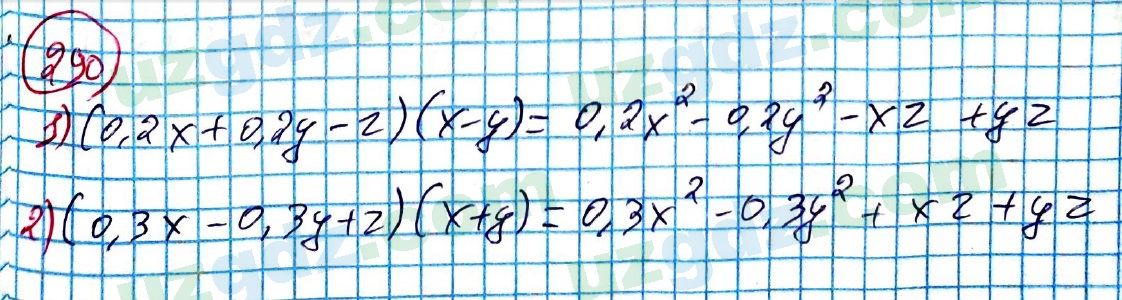 290
1) (0,2x + 0,2y - z)(x - y) = 0,2x² - 0,2y² - xz + yz
2) (0,3x - 0,3y + z)(x + y) = 0,3x² - 0,3y² + xz + yz
uzgdz.com
uzgdz.com
uzgdz.com
uzgdz.com